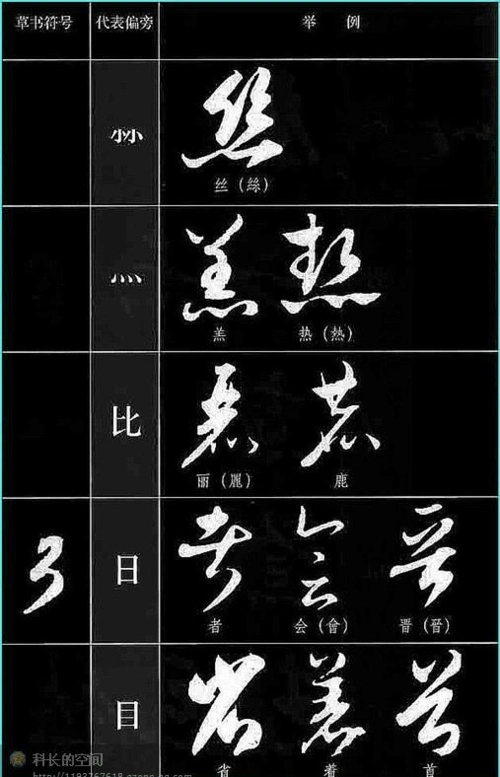 草书符号 代表偏旁 举 例
丝（絲）
灬
羔 热（熱）
比
丽（麗） 鹿
日
者 会（會） 晋（晉）
目
省 着 首
科长的空间